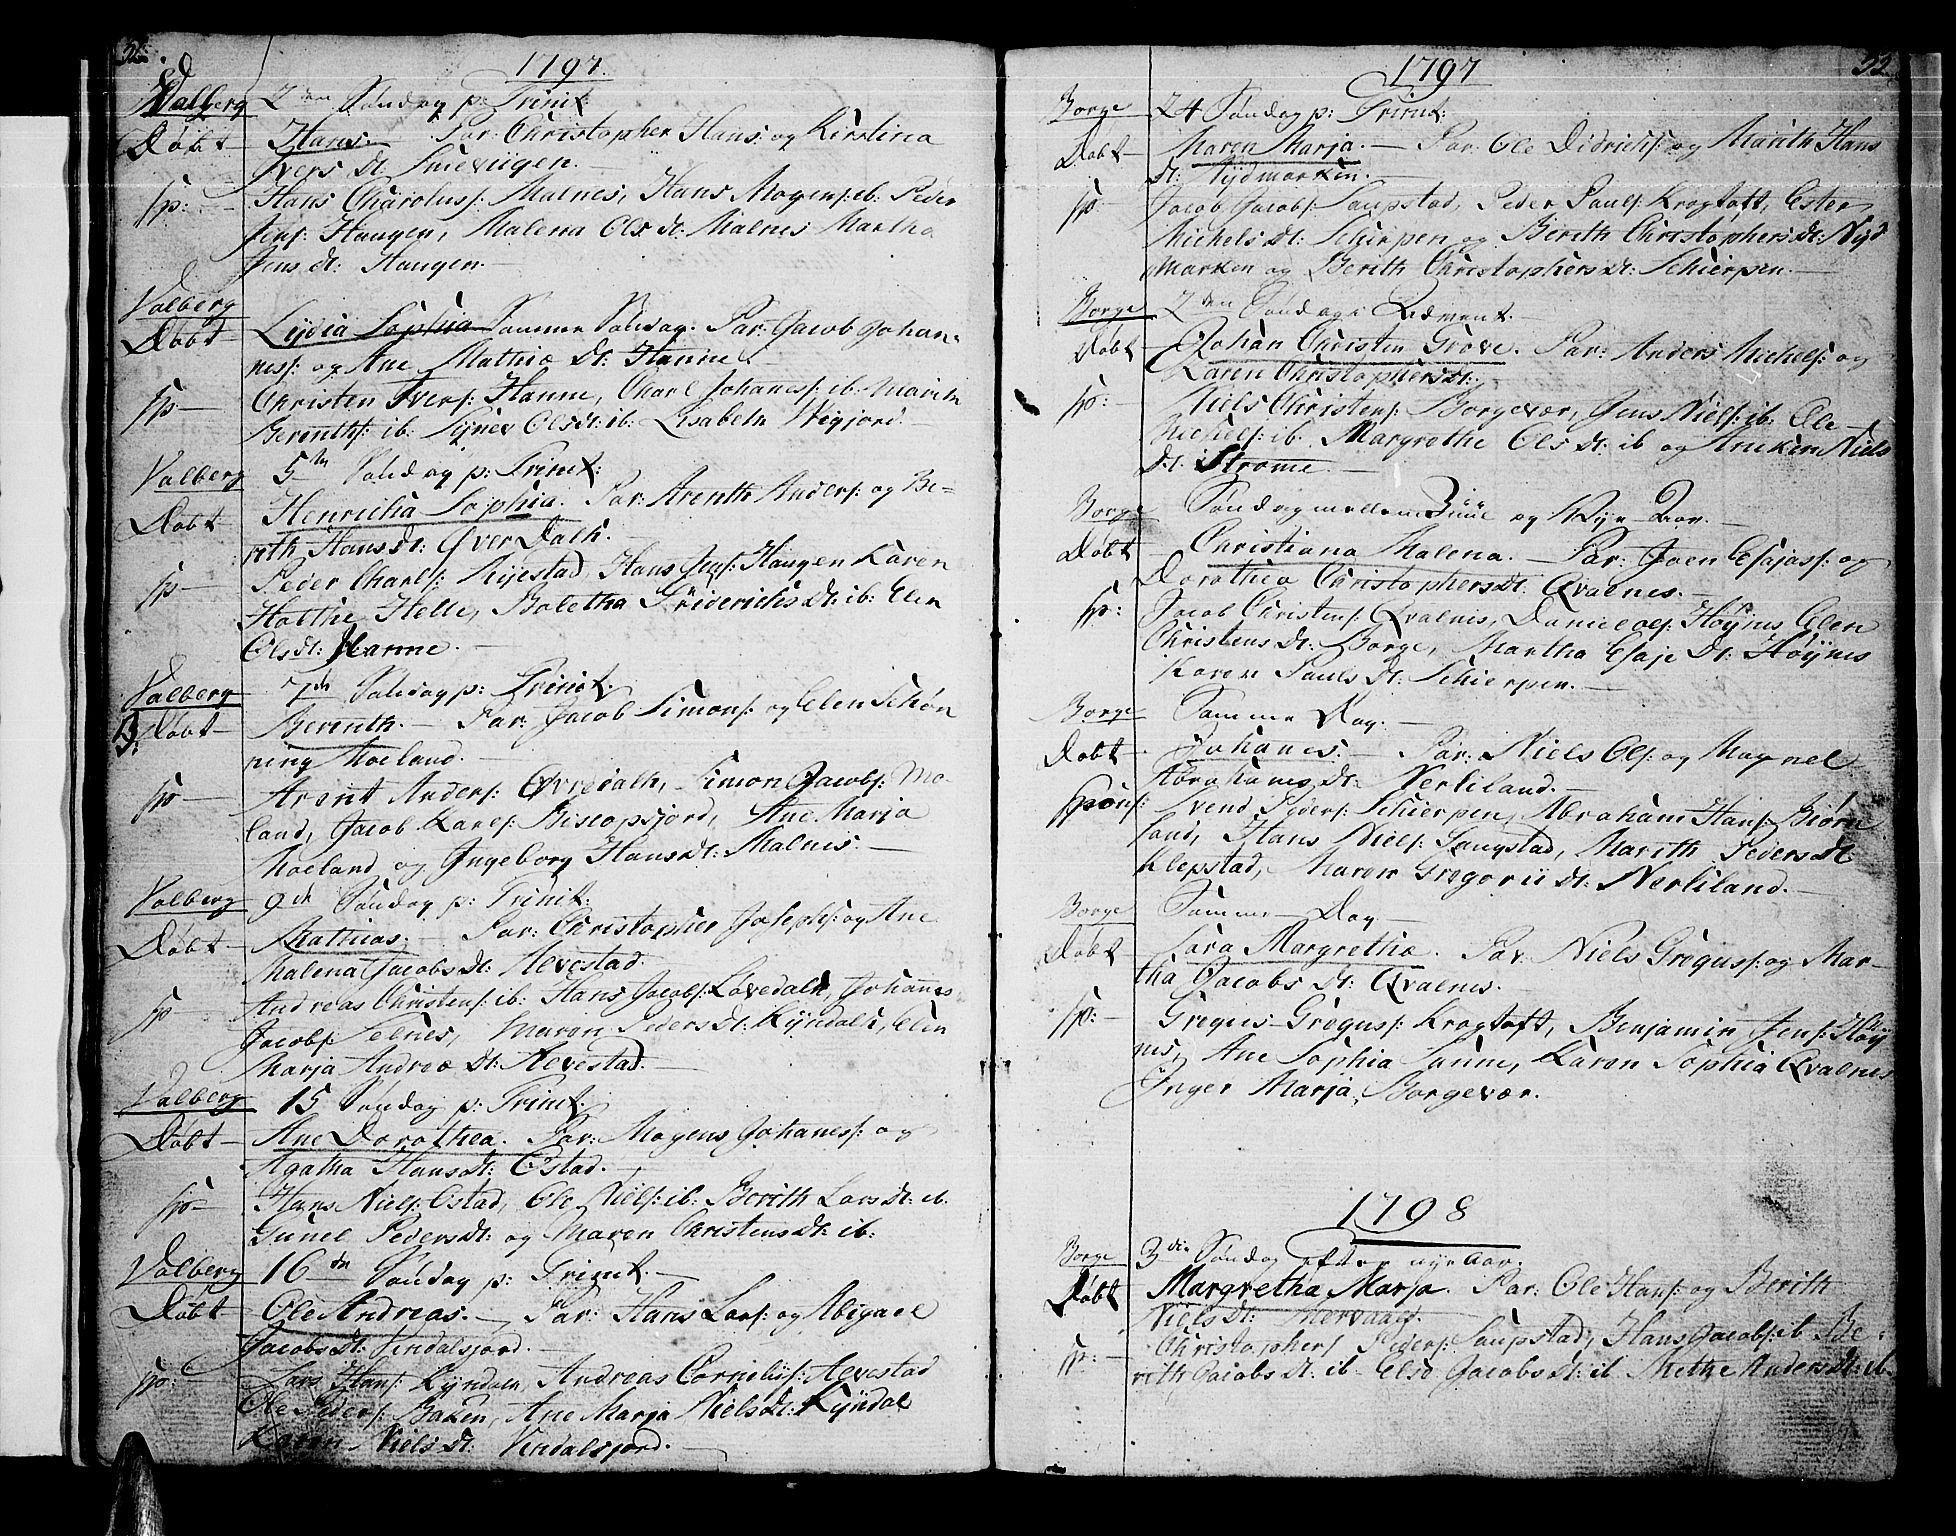 1797.
Valberg 2den Søndag p: Trinit:
Døbt Hans. Par: Christopher Hans: og Kirstina
Ivers dt:
Sp: Hans Charolus: Malnes, Hans Mogens: ib: Peder
Jens: Haugen, Malena Ols dt: Malnes Martha
Jens dt: Haugen.
Valberg
Døbt Lydia Sophia Samme Søndag. Par: Jacob Johan-
nes: og Ane Mathiæ dt: Hanne.
Sp Christen Ivers: Hanne, Charl Johanes: ib: Marith
Bernths: ib: Ols dt: ib: Lisabeth
Valberg 5te Søndag p: Trinit:
Døbt Henricha Sophia. Par: Arenth Anders: og Be-
rith Hans dt: Øver Dalh.
Sp Peder Charls: Hans Jens: Haugen Karen
Holthe Helle, Boletha Friderichs dt: ib: Elen
Ols dt: Hanne.
Valberg 7de Søndag p: Trinit.
Døbt Berenth. Par: Jacob Simons: og Elen Schøn
ning Moeland.
Sp Arent Anders: Øvredalh, Simon Jacobs: Mo-
land, Jacob Karls: Biscopsjord, Ane Marja
Moeland og Ingeborg Hans dt: Malnis.
Valberg 9de Søndag p: Trinit:
Døbt Mathias. Par: Christopher Josephs: og Ane
Malena Jacobs dt: Hevestad.
Sp Andreas Christens: ib: Hans Jacobs: Løvedalh, Johannes
Jacobs: Selnes, Maren Peders dt: Kyndalh, Elen
Marja Andreæ dt: Hevestad.
Valberg 15 Søndag p: Trinit.
Døbt Ane Dorothea. Par: Mogens Johanes: og
Agatha Hans dt: Ostad.
Sp Hans Niels: Ostad, Ole Niels: ib: Berith Lars dt: ib.
Gunel Peders dt: og Maren Christens dt: ib:
Valberg 16de Søndag p: Trinit.
Døbt Ole Andreas. Par: Hans Lars: og Abigael
Jacobs dt: Vendalsjord.
Sp: Lars Hans: Kyndalh, Andreas Cornelius: Hevestad
Ole Peders: Bakken, Ane Marja Niels dt: Kyndal
Karen Niels dt: Vendalsjord.
1797
32
Borge 24 Søndag p: Trinit:
Døbt Maren Marja. Par: Ole Didrichs: og Marith Hans
dt: Nydmarken.
Sp Jacob Jacobs: Saupstad, Peder Pauls: Kragtoft, Ester
Michels dt: Schierpen og Berith Christophers dt: Nyd
marken og Berith Christophers dt: Schierpen.
Borge 2den Søndag i Advent.
Døbt Johan Christen Grove. Par: Anders Michels: og
Karen Christophers dt:
Sp: Niels Christens: Borgevær, Jens Niels: ib: Ole
Michels: ib. Margrethe Ols dt: ib og Anniken Niels
dt: Strøme.
Borge Søndag mellem Juul og Nye Aar.
Døbt Christiana Malena. Par: Joen Esajas: og
Dorothea Christophers dt: Qvalnes.
Sp: Jacob Christens: Qvalnis, Daniel Ols: Høynes Elen
Christens dt: Borge, Martha Esaje dt: Høynes
Karen Pauls dt: Schierpen.
Borge Samme Dag.
Døbt Johanes. Par: Niels Ols: og Magnel
Abrahams dt: Nerliland.
Spons: Svend Peders: Schierpen, Abraham Hans: Biørn
land, Hans Niels: Saugstad, Marith Peders dt:
Klepstad, Maren Gregorii dt: Nerliland.
Borge Samme Dag
Døbt Sara Margrethæ. Par: Niels Gregus: og Mar-
tha Jacobs dt: Qvalnes.
Sp: Gregus Gregus: Kragtoft, Benjamin Jens: Høy
nes, Ane Sophia Sunne, Karen Sophia Qvalnes
Inger Marja, Borgevær.
1798
Borge 3die Søndag efter nyeaar.
Døbt Margretha Marja. Par: Ole Hans: og Berith
Niels dt: Mervaal.
Sp: Christopher Peders: Saupstad, Hans Jacobs: ib Be-
rith Jacobs dt: ib Else Jacobs dt: ib Methe Anders dt: ib.